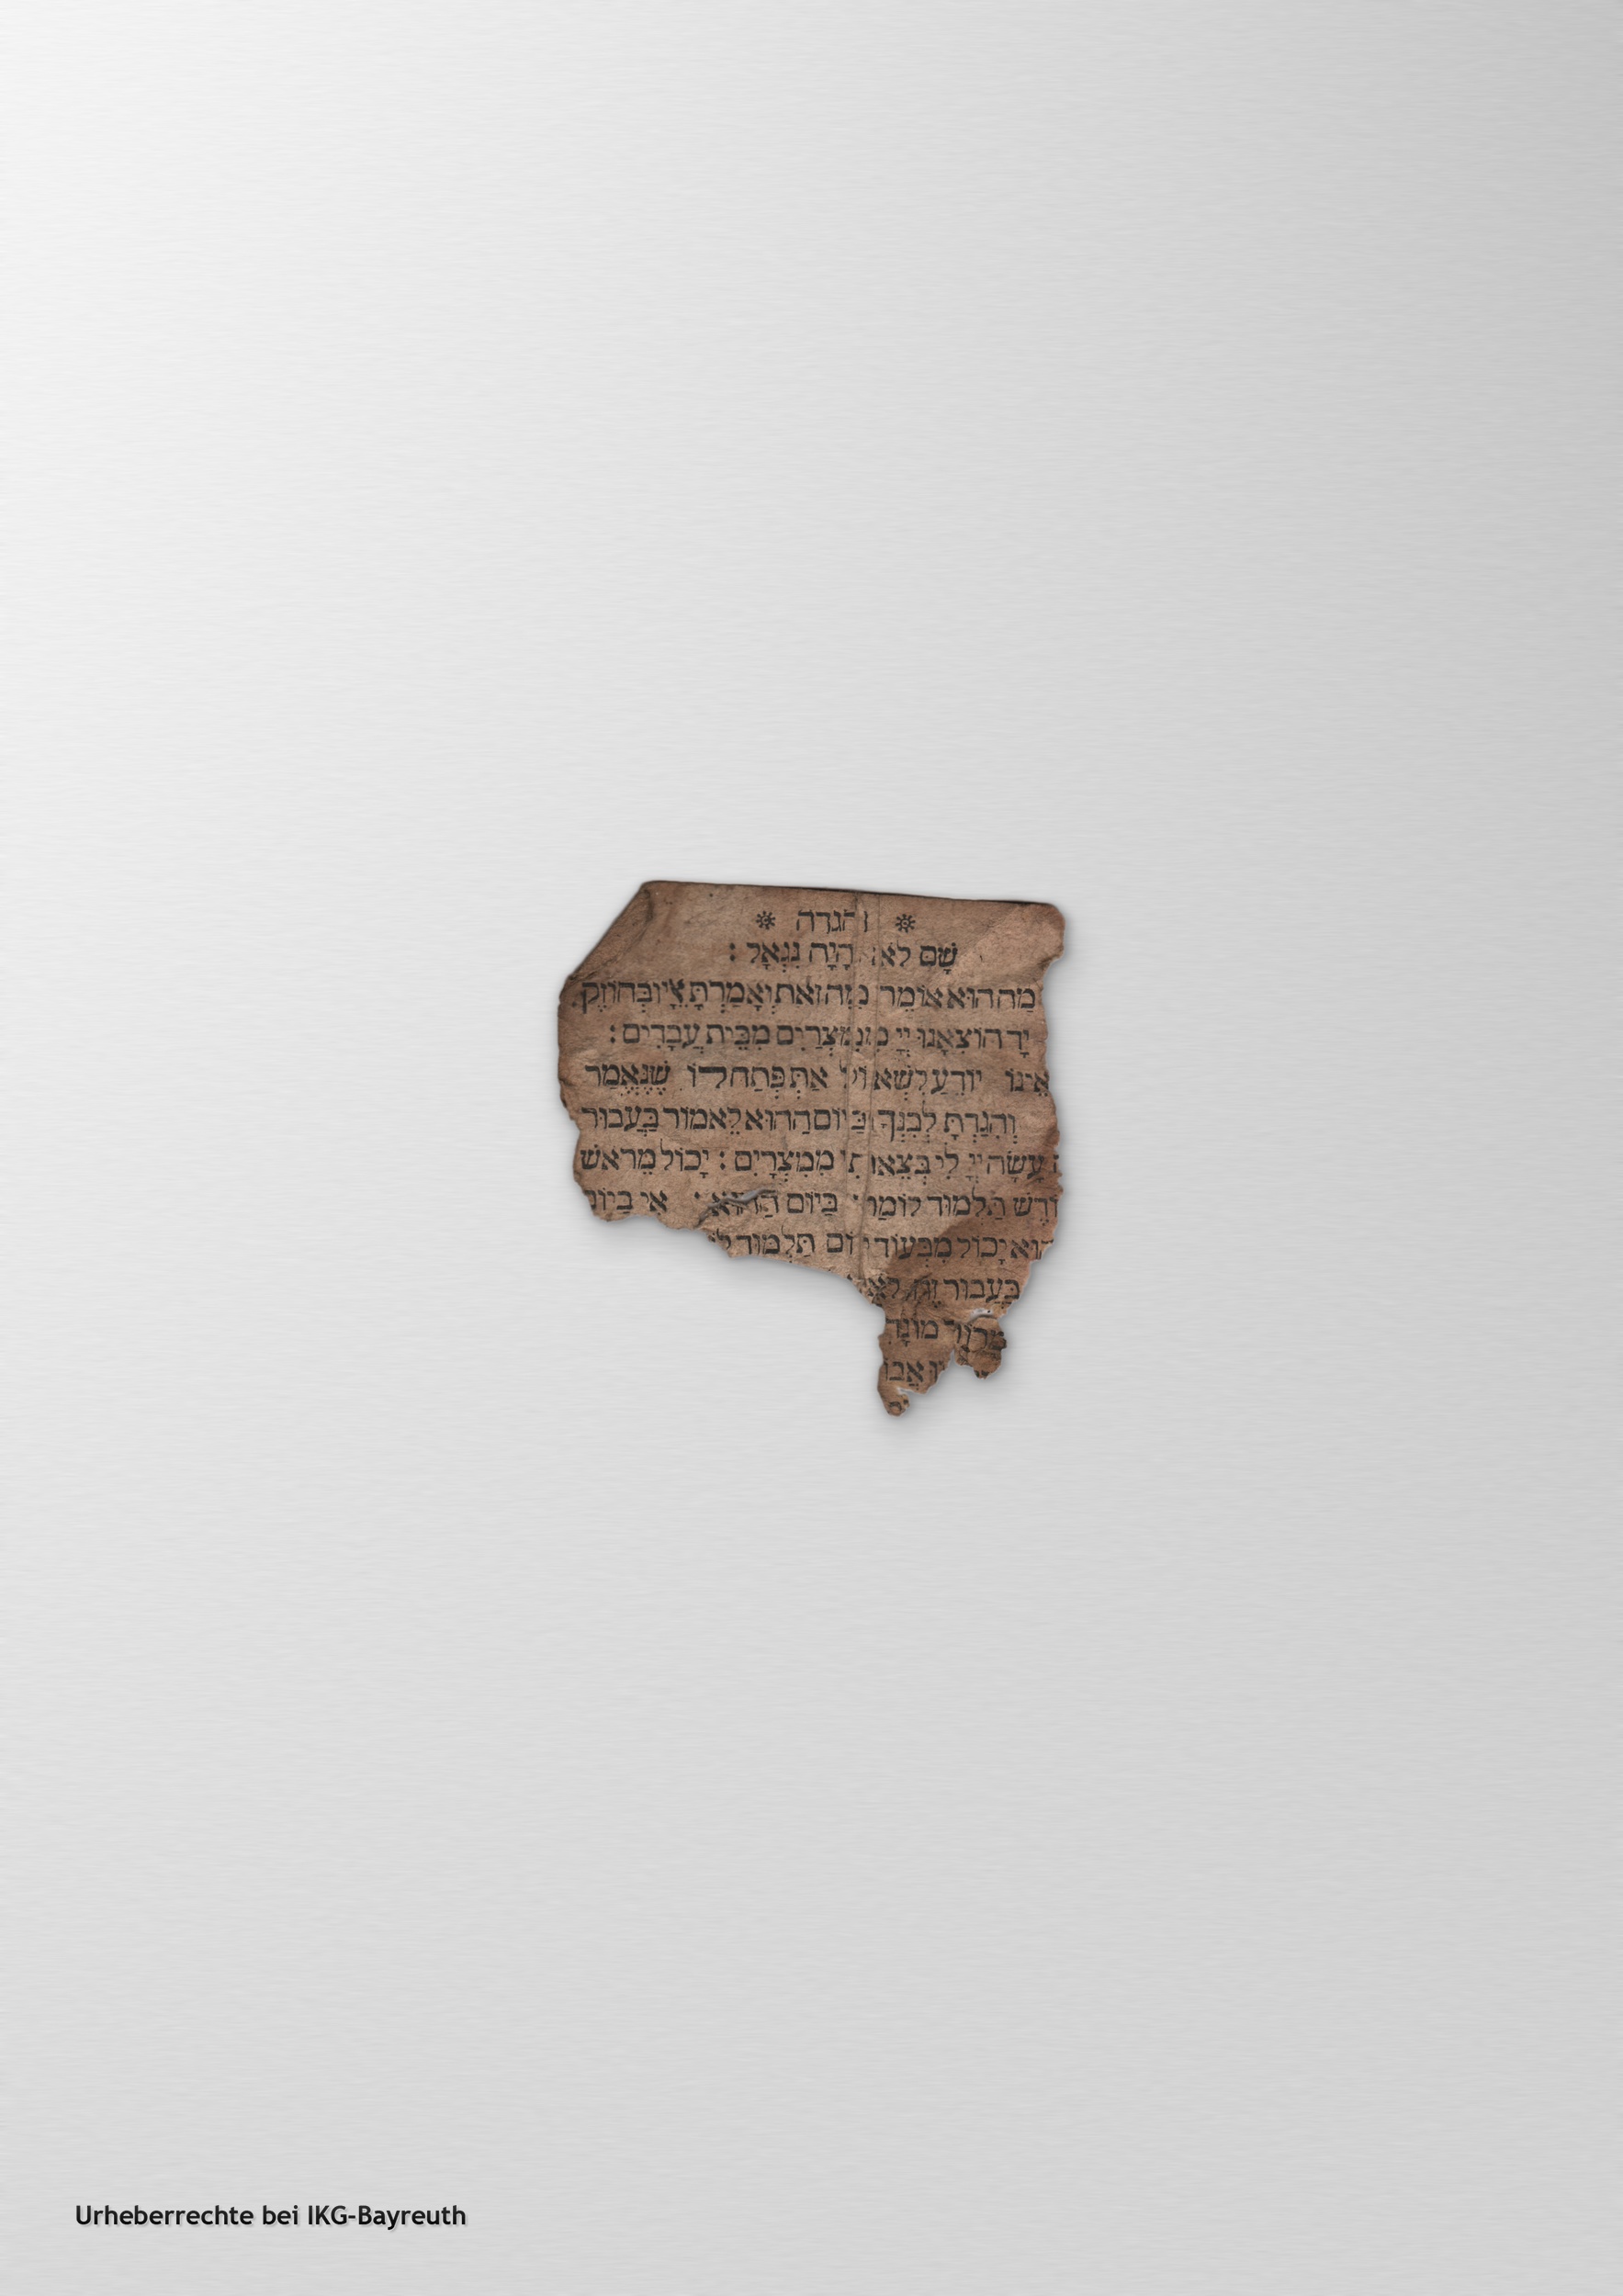 הגדה
שָׁם לֹא הָיָה נִגְאָל :
מַה הוּא אוֹמֵר מַה זֹאת וְאָמַרְתָּ אֵלָיו בְּחוֹזֶק
יָד הוֹצִיאָנוּ יְיָ מִמִּצְרַיִם מִבֵּית עֲבָדִים :
אֵינוֹ יוֹדֵעַ לִשְׁאוֹל אַתְּ פְּתַח לוֹ שֶׁנֶּאֱמַר
וְהִגַּדְתָּ לְבִנְךָ בַּיוֹם הַהוּא לֵאמוֹר בַּעֲבוּר
עָשָׂה יְיָ לִי בְּצֵאתִי מִמִּצְרָיִם : יָכוֹל מֵרֹאשׁ
תַּלְמוּד לוֹמַר בַּיּוֹם הַהוּא : אִי בַיּוֹם
יָכוֹל מִבְּעוֹד יוֹם תַּלְמוּד
בַּעֲבוּר זֶה לֹא
מָרוֹר
Urheberrechte bei IKG-Bayreuth